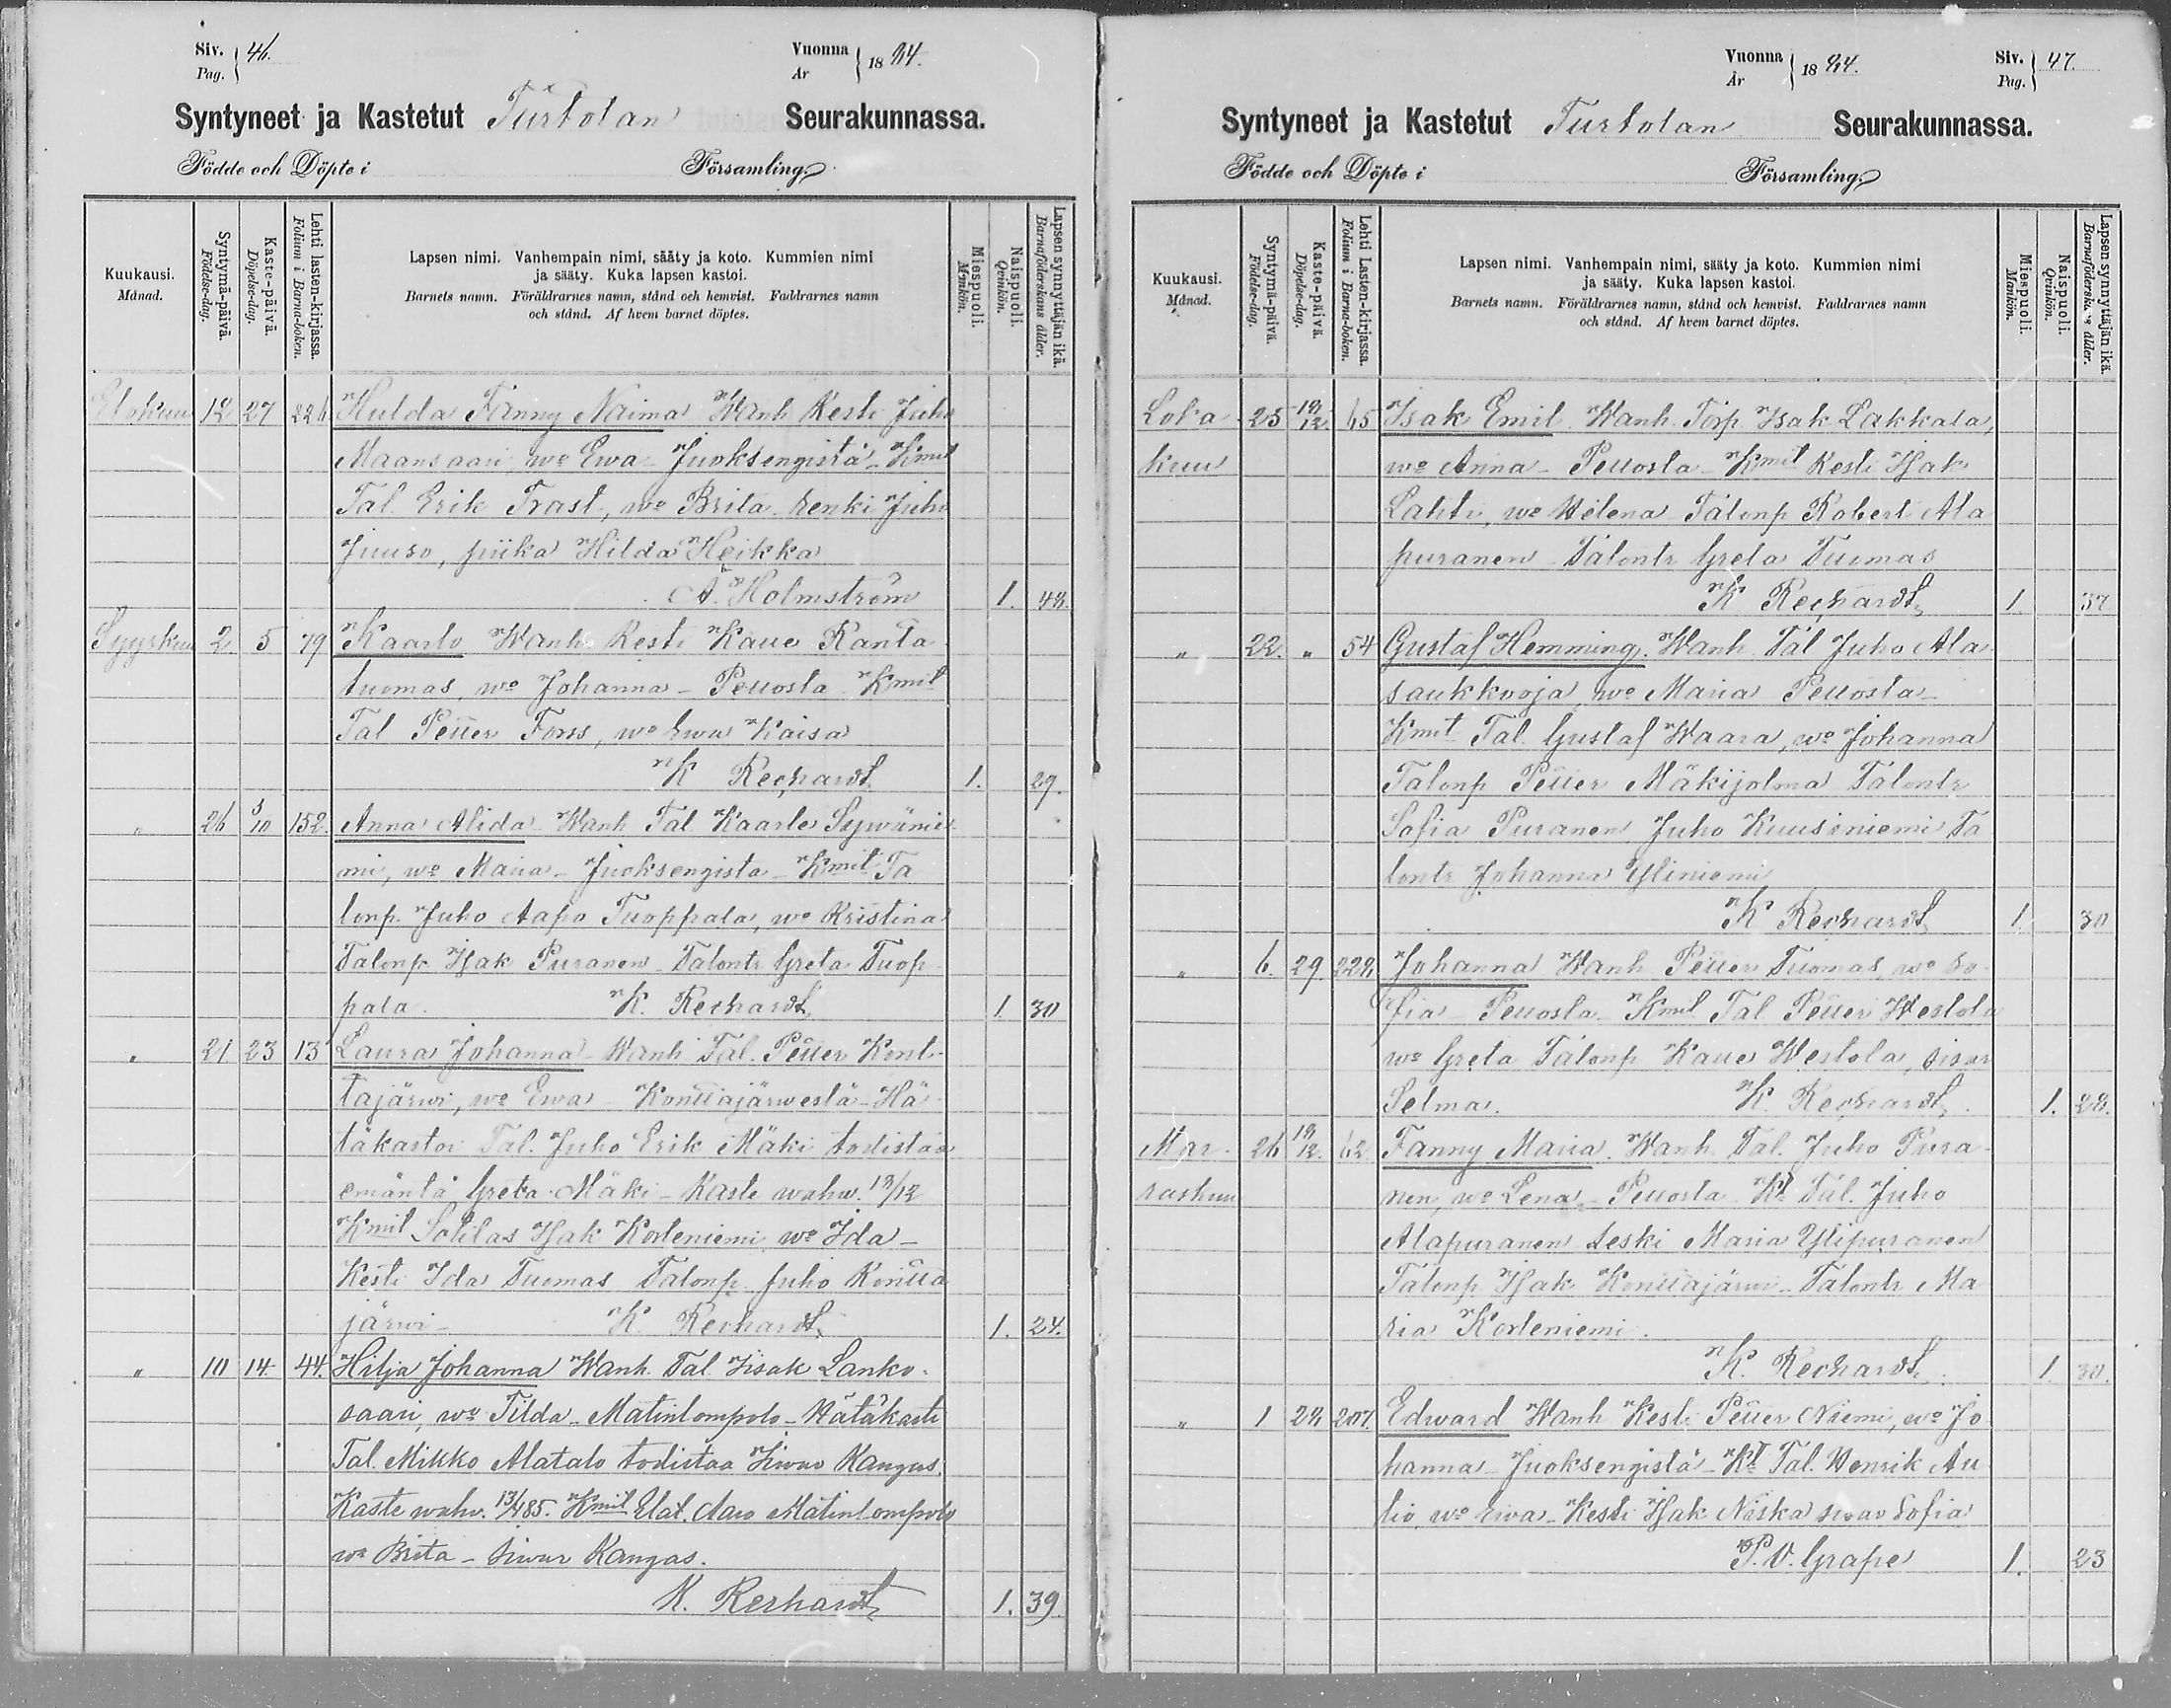 Siv. Pag. 46.
Vuonna År 1884.
Syntyneet ja Kastetut Turtolan Seurakunnassa.
Födde och Döpte i Församling.
Kuukausi. Månad.
Syntymä-päivä. Födelse-dag.
Kaste-päivä. Döpelse-dag.
Lehti lasten-kirjassa. Folium i Barna-boken.
Lapsen nimi. Vanhempain nimi, sääty ja koto. Kummien nimi
ja sääty. Kuka lapsen kastoi.
Barnets namn. Föräldrarnes namn, stånd och hemvist. Faddrarnes namn
och stånd. Af hvem barnet döptes.
Miespuoli. Mankön.
Naispuoli. Qvinkön.
Lapsen synnyttäjän ikä. Barnaföderskans ålder.
Elokuu 12 27 226 Hulda Fanny Naima Wanh Kesti Juho
Maansaari wo Ewa Juoksengistä - Kmit
Tal. Erik Trast, wo Brita. renki Juho
Juuso, piika Hilda Heikka
A. Holmström 1. 48.
Syyskuu 2 5 79 Kaarlo Wanh. Kesti Kalle Ranta
tuomas, wo Johanna - Pellosta Kmit
Tal Petter Forss, wo Ewa Kaisa
K Rechardt 1. 29.
" 26 5/10 152. Anna Alida - Wanh Tal Kaarle Sywänie
mi, wo Maria - Juoksengista - Kmit Ta
lonp. Juho Aapo Tuoppala, wo Kristina
Talonp Isak Puranen - Talontr Greta Tuop
pala. K. Rechardt 1. 30
" 21 23 13 Laura Johanna - Wanh Tal. Petter Kont-
tajärwi, wo Ewa - Konttajärwestä - Hä
täkastoi Tal. Juho Erik Mäki todistaa
emäntä Greta Mäki - Kaste wahw. 18/12
Kmit Sotilas Isak Korteniemi wo Ida -
Kesti Ida Tuomas Talonp. Juho Kontta
järwi - K. Rechardt 1. 24.
" 10 14. 44. Hilja Johanna Wanh. Tal Iisak Lanko-
saari, wo Tilda - Matinlompolo - Hätäkaste
Tal. Mikko Alatalo todistaa Kangas.
Kaste wahw. 13/4 85. Kmit Elat. Aaro Matinlompolo
wo Brita - Kangas.
K. Rechardt 1. 39.
Vuonna År 1884.
Siv. Pag. 47.
Syntyneet ja Kastetut Turtolan Seurakunnassa.
Födde och Döpte i Församling.
Kuukausi. Månad.
Syntymä-päivä. Födelse-dag.
Kaste-päivä. Döpelse-dag.
Lehti Lasten-kirjassa. Folium i Barna-boken.
Lapsen nimi. Vanhempain nimi, sääty ja koto. Kummien nimi
ja sääty. Kuka lapsen kastoi.
Barnets namn. Föräldrarnes namn, stånd och hemvist. Faddrarnes namn
och stånd. Af hvem barnet döptes.
Miespuoli. Mankön.
Naispuoli. Qvinkön.
Lapsen synnyttäjän ikä. Barnaföderskans ålder.
Loka 25 18/12. 65 Isak Emil. Wanh. Torp Isak Lakkala,
kuu wo Anna - Pellosta - Kmit Kesti Isak
Lahti, wo Helena - Talonp Robert Ala
puranen - Talontr Greta Tuomas
K Rechardt 1. 37
" 22. " 54 Gustaf Hemming. Wanh. Tal Juho Ala
saukkooja, wo Maria Pellosta -
Kmit Tal. Gustaf Waara, wo Johanna
Talonp Petter Mäkijolma Talontr
Sofia Puranen, Juho Kuusiniemi Ta
lontr Johanna Yliniemi
K Rechardt 1. 30
" 6. 29 228, Johanna Wanh. Petter Tuomas, wo So-
fia - Pellosta. Kmit Tal Petter Westola
wo Greta Talonp Kalle Westola, sisar
Selma. K. Rechardt 1. 28.
Mar- 26 18/12. 62 Fanny Maria. Wanh. Tal. Juho Pura-
raskuu nen, wo Lena - Pellosta Kt Tal. Juho
Alapuranen Leski Maria Ylipuranen
Talonp Isak Konttajärwi - Talontr Ma
ria Korteniemi.
K. Rechardt 1. 30.
" 1 24 207. Edward Wanh Kesti Petter Niemi, wo Jo
hanna - Juoksengistä - Kt Tal. Henrik Au
tio, wo Ewa - Kesti Isak Niska sisar Sofia
P. V. Grape 1. 23